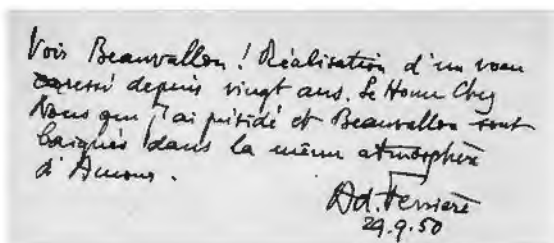 Voir Beauvallon ! Réalisation d'un voeu
caressé depuis vingt ans. Le Home Chez
Nous que j'ai présidé et Beauvallon sont
baignés dans la même atmosphère
d'Amour.
Ad. Ferrière
29.9.50